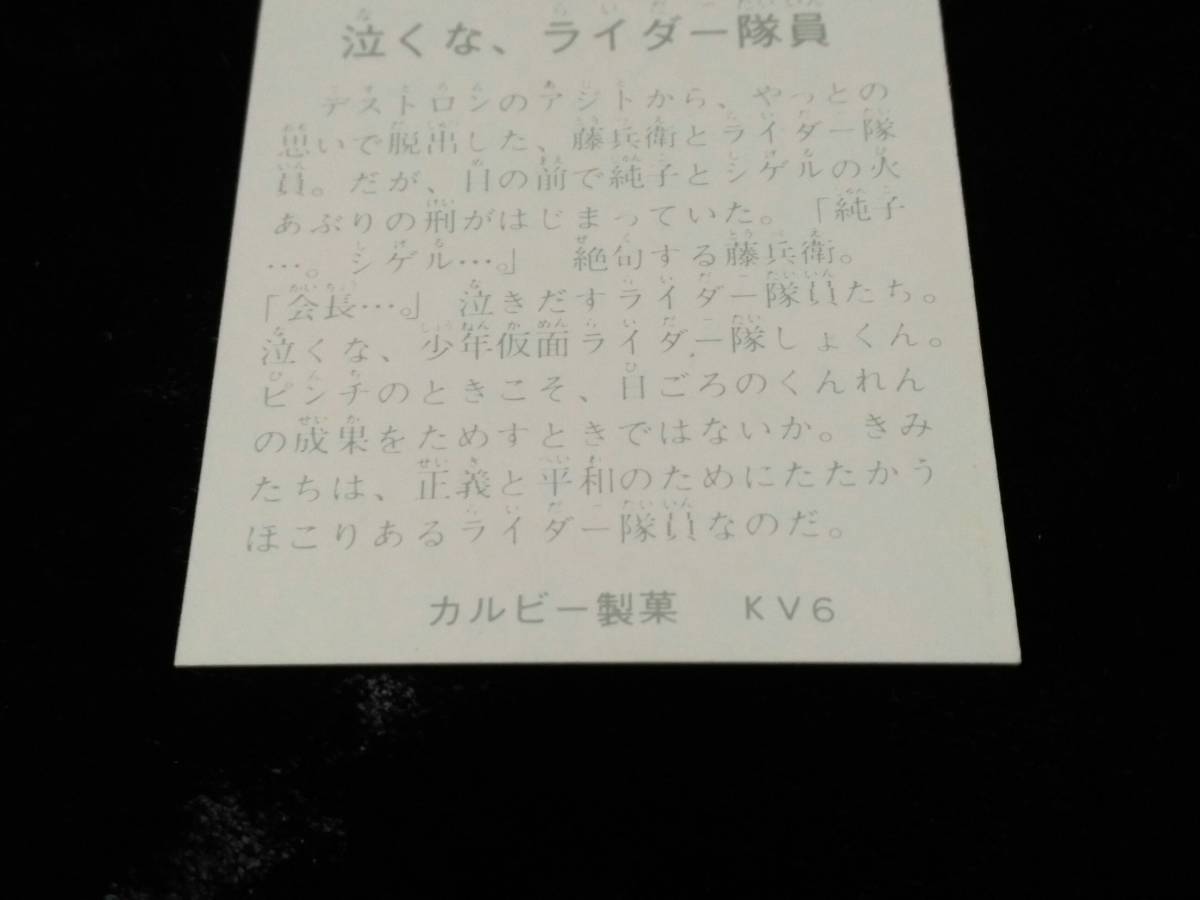 泣くな、ライダー隊員
デストロンのアジトから、やっとの
思いで脱出した、藤兵衛とライダー隊
員。だが、目の前で純子とシゲルの火
あぶりの刑がはじまっていた。「純子
…。シゲル…。」　絶句する藤兵衛。
「会長…。」 泣きだすライダー隊員たち。
泣くな、少年仮面ライダー隊しょくん。
ピンチのときこそ、日ごろのくんれん
の成果をためすときではないか。きみ
たちは、正義と平和のためにたたかう
ほこりあるライダー隊員なのだ。
カルビー製菓　KV6